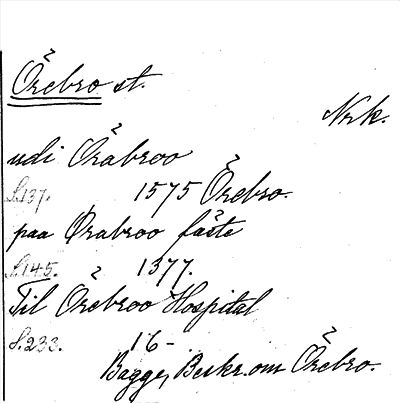 Örebro st.
Nrk.
udi Örabroo
S.137. 1575 Örebro.
paa Ørabroo fäste
S.145. 1377.
Til Örebroo Hospital
S.233. 16-
Bagge, Beskr. om Örebro.